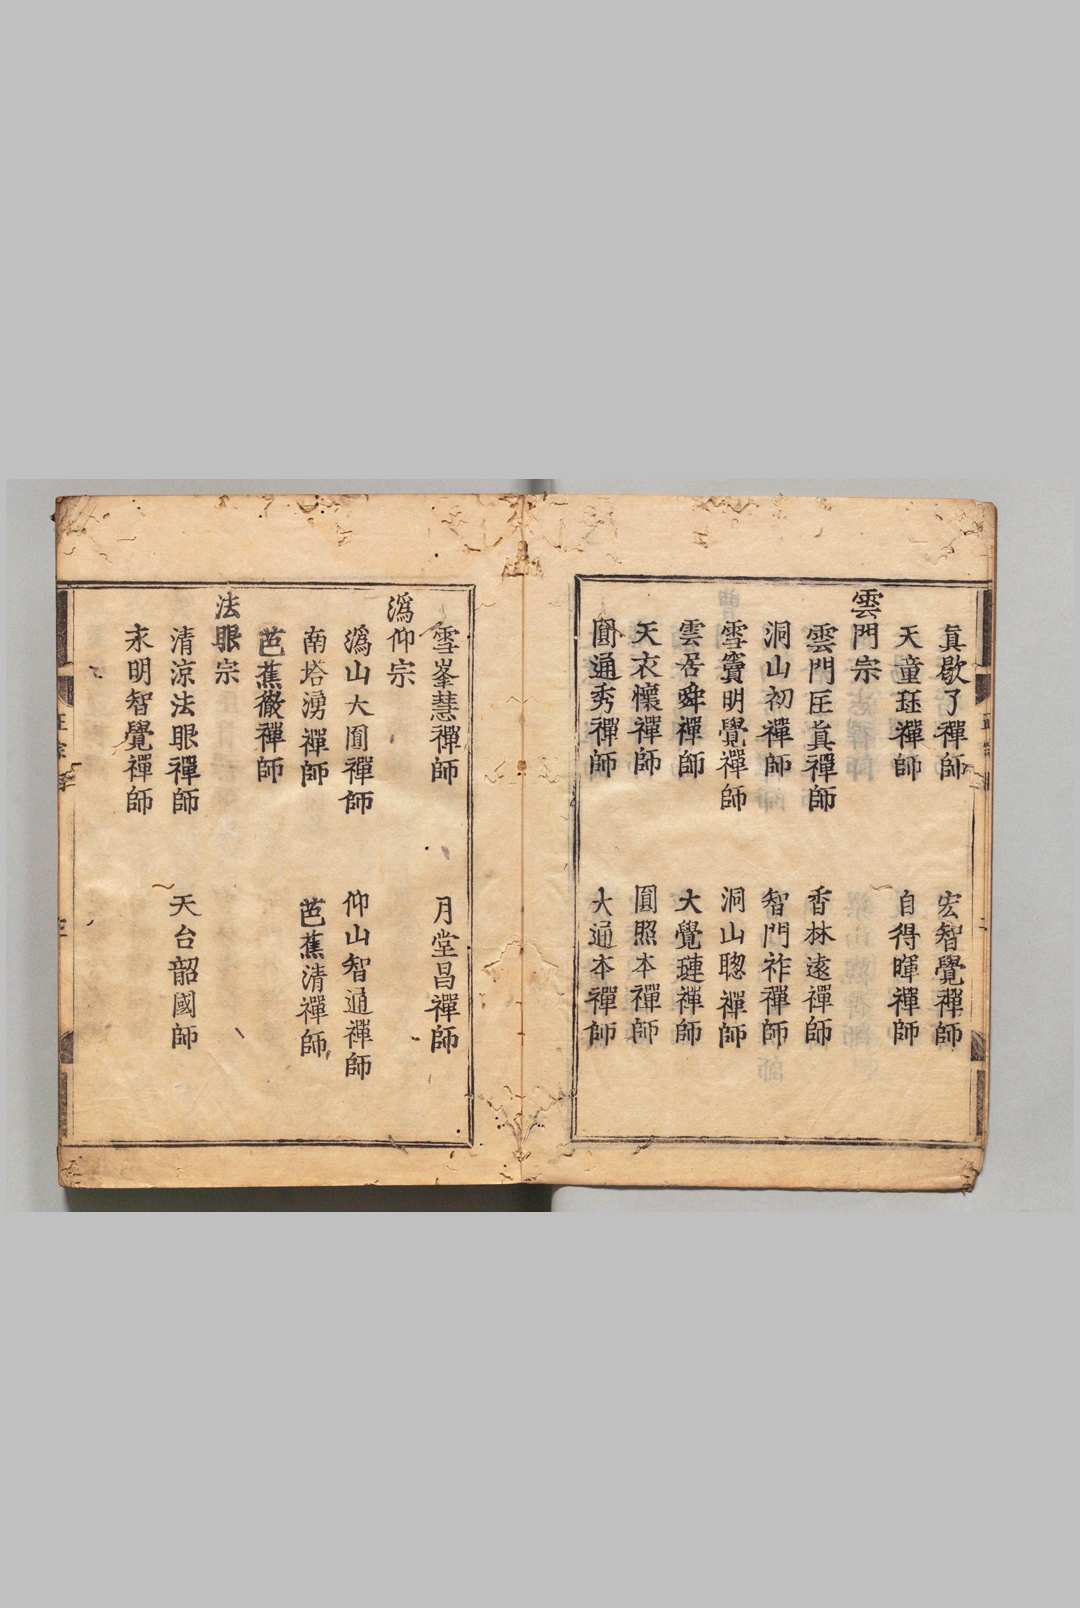 眞歇了禪師　宏智覺禪師
天童珏禪師　自得暉禪師
雲門宗
雲門匡眞禪師　香林遠禪師
洞山初禪師　智門祚禪師
雪竇明覺禪師　洞山聰禪師
雲居舜禪師　大覺璉禪師
天衣懷禪師　圓照本禪師
圓通秀禪師　大通本禪師
雪峯慧禪師　月堂昌禪師
潙仰宗
潙山大圓禪師　仰山智通禪師
南塔湧禪師　芭蕉清禪師
芭蕉徹禪師
法眼宗
清涼法眼禪師　天台韶國師
永明智覺禪師